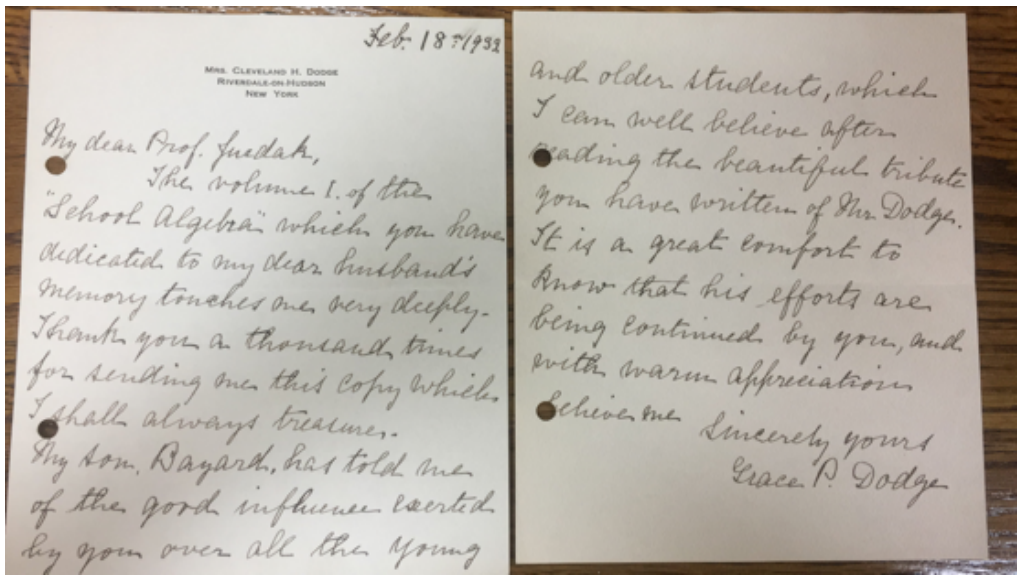 Feb. 18th 1932
MRS. CLEVELAND H. DODGE
RIVERDALE-ON-HUDSON
NEW YORK
My dear Prof. Juedak,
The volume I. of the
"School Algebra" which you have
dedicated to my dear husband's
memory touches me very deeply.
Thank you a thousand times
for sending me this copy which
I shall always treasure.
My son, Bayard, has told me
of the good influence exerted
by you over all the young
and older students, which
I can well believe after
reading the beautiful tribute
you have written of Mr. Dodge.
It is a great comfort to
know that his efforts are
being continued by you, and
with warm appreciation
believe me
Sincerely yours
Grace P. Dodge